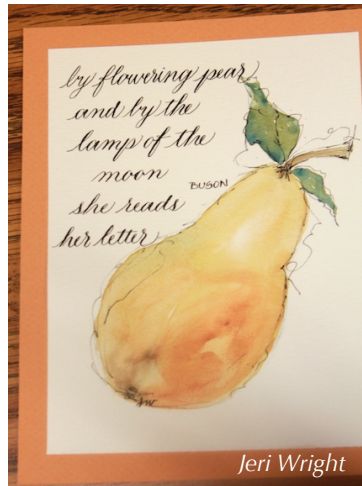 by flowering pear
and by the
lamp of the
moon
she reads
her letter
BUSON
JW
Jeri Wright